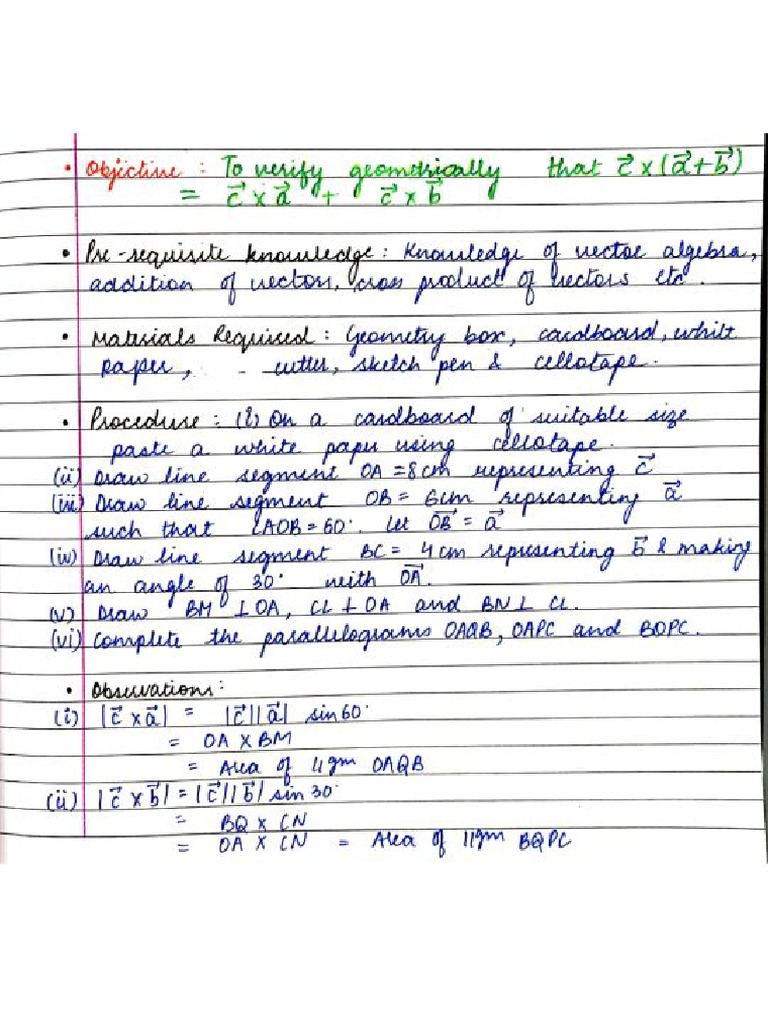 • Objective : To verify geometrically that c⃗ × (a⃗ + b⃗)
= c⃗ × a⃗ + c⃗ × b⃗
• Pre-requisite knowledge : Knowledge of vector algebra,
addition of vectors, cross product of vectors etc.
• Materials Required : Geometry box, cardboard, white
paper, cutter, sketch pen & cellotape.
• Procedure : (i) On a cardboard of suitable size
paste a white paper using cellotape.
(ii) Draw line segment OA = 8cm representing c⃗
(iii) Draw line segment OB = 6cm representing a⃗
such that ∠AOB = 60°. Let OB⃗ = a⃗
(iv) Draw line segment BC = 4cm representing b⃗ & making
an angle of 30° with OA⃗.
(v) Draw BM ⊥ OA, CL ⊥ OA and BN ⊥ CL.
(vi) Complete the parallelograms OAQB, OAPC and BQPC.
• Observations :
(i) |c⃗ × a⃗| = |c⃗||a⃗| sin60°
= OA × BM
= Area of ||gm OAQB
(ii) |c⃗ × b⃗| = |c⃗||b⃗| sin30°
= BQ × CN
= OA × CN = Area of ||gm BQPC